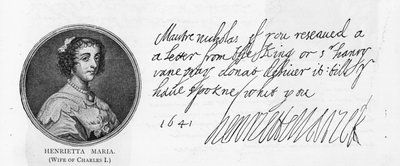 Maistre nicholas if you reseaued a
a letter from the King or Sr hanry
vane pray donat deliuer it till I
haue spokne whit you
1641
Henriette Marie R
HENRIETTA MARIA.
(WIFE OF CHARLES I.)